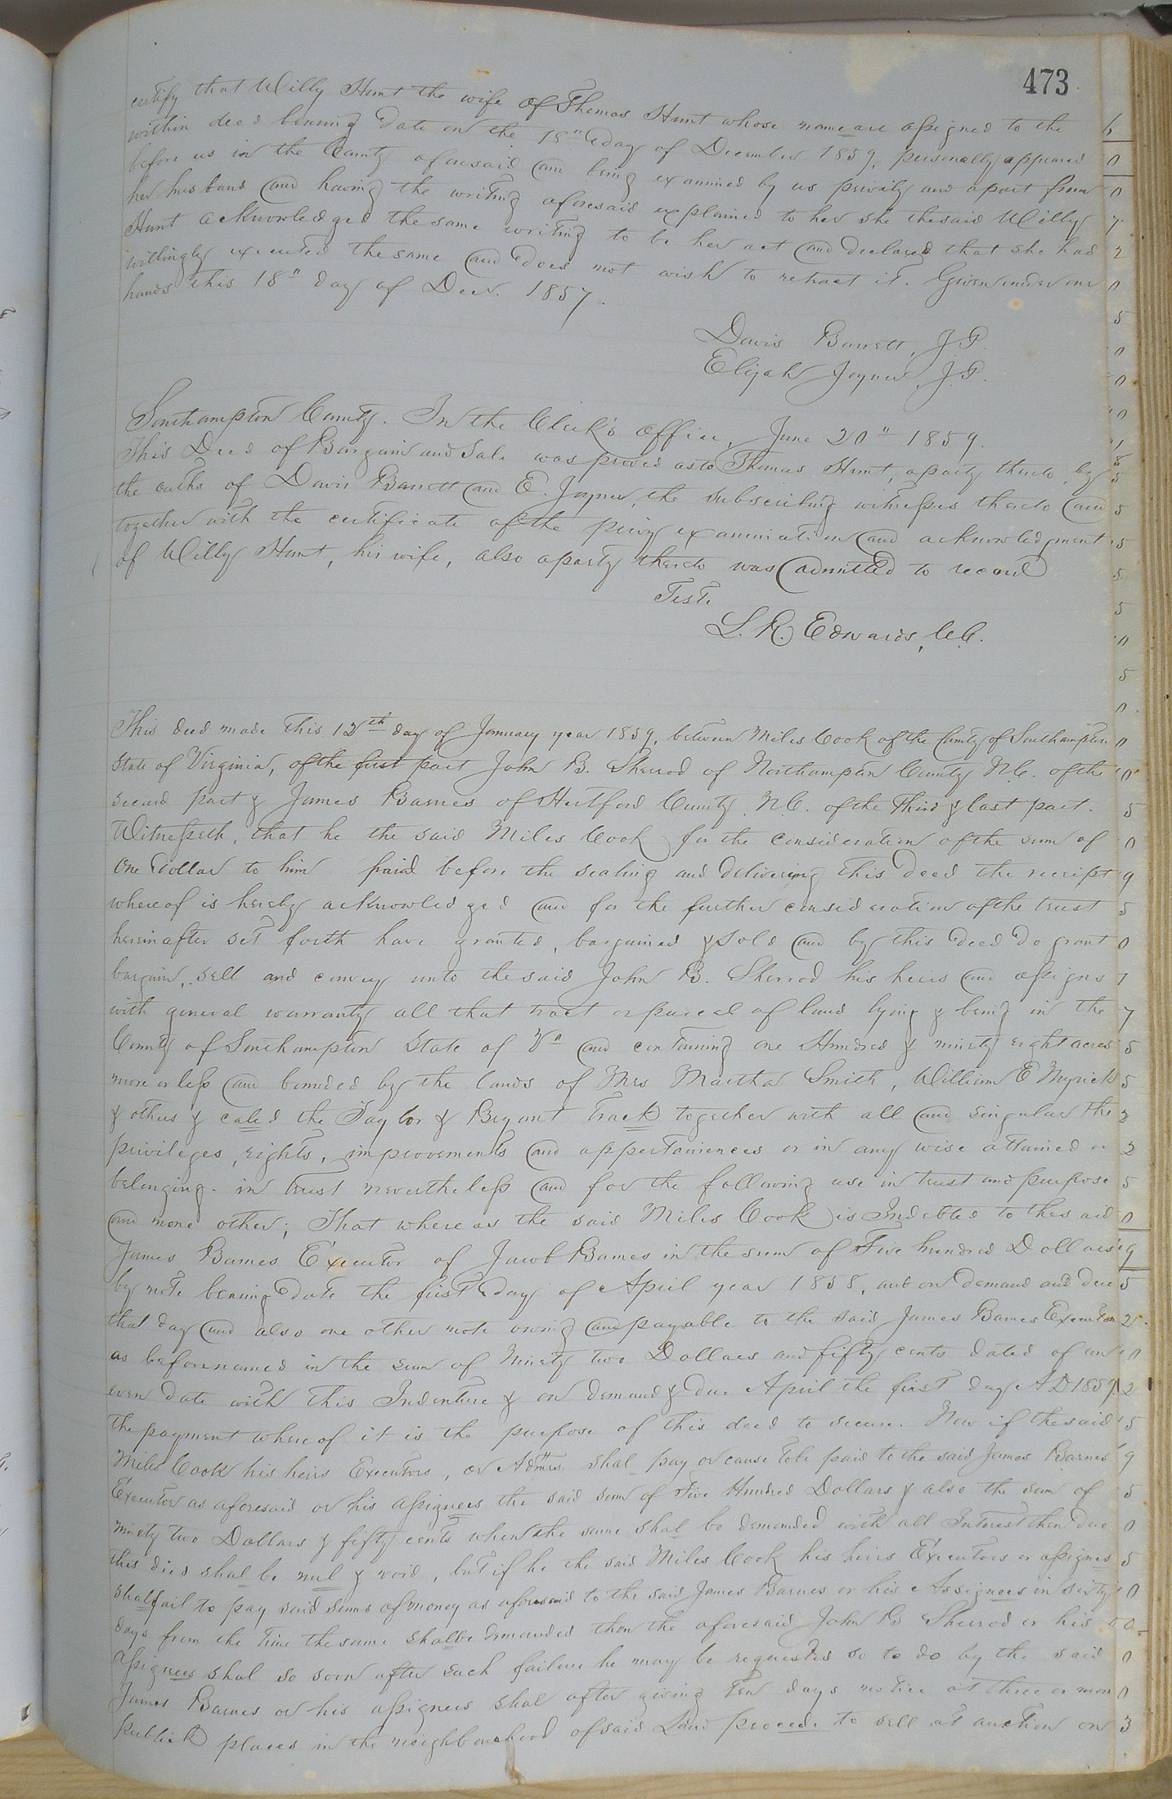 473
certify that Willy Hunt the wife of Thomas Hunt whose name are assigned to the
within deed bearing date on the 18" day of December 1857, personally appeared
before us in the County aforesaid and being examined by us privily and apart from
her husband and having the writing aforesaid explained to her she the said Willy
Hunt acknowledged the same writing to be her act and declared that she had
willingly executed the same and does not wish to retract it. Given under our
hands this 18" day of Decr. 1857.
Davis Barrett, J.P.
Elijah Joyner, J.P.
Southampton County. In the Clerk's Office, June 20" 1859.
This Deed of Bargain and Sale was proved as to Thomas Hunt, a party thereto by
the oaths of Davis Barrett and E. Joyner, the subscribing witnesses thereto and
together with the certificate of the privy examination and acknowledgment
of Willy Hunt, his wife, also a party thereto was admitted to record
Teste
L. R. Edwards, C.C.
This deed made this 12th day of January year 1859, between Miles Cook of the County of Southampton
State of Virginia, of the first part John B. Sherrod of Northampton County N.C. of the
second part & James Barnes of Hertford County N.C. of the third & last part.
Witnesseth, that he the said Miles Cook for the consideration of the sum of
One Dollar to him paid before the sealing and delivering this deed the receipt
whereof is hereby acknowledged and for the further consideration of the trust
hereinafter set forth have granted, bargained & sold and by this deed do grant
bargain, sell and convey unto the said John B. Sherrod his heirs and assigns
with general warranty all that tract or parcel of land lying & being in the
County of Southampton State of Va and containing one Hundred & ninety eight acres
more or less and bounded by the lands of Mrs Martha Smith, William E Myrick
& others & caled the Taylor & Bryant Track together with all and singular the
privileges, rights, improvements and appertainences or in any wise attained or
belonging. in trust nevertheless and for the following use in trust and purpose
and none other; That where as the said Miles Cook is Indebted to the said
James Barnes Executor of Jacob Barnes in the sum of Five hundred Dollars
by note bearing date the first day of April year 1858, and on demand and due
that day and also one other note owing and payable to the said James Barnes Executor
as before named in the sum of Ninety two Dollars and fifty cents dated of an
even date with this Indenture & on demand & due April the first day AD 1859
the payment whereof it is the purpose of this deed to secure. Now if the said
Miles Cook his heirs Executors, or Admrs. shal pay or cause to be paid to the said James Barnes
Executor as aforesaid or his assignees the said sum of Five Hundred Dollars & also the sum of
ninety two Dollars & fifty cents when the same shal be demanded with all Interest then due
this deed shal be nul & void, but if he the said Miles Cook his heirs Executors or assignes
shal fail to pay said sums of money as aforesaid to the said James Barnes or his Assignees in sixty
days from the time the same shal be demanded then the aforesaid John B Sherrod or his
assignees shal so soon after such failure he may be requested so to do by the said
James Barnes or his assignees shal after giving ten days notice at three or more
publick places in the neighbourhood of said Land proceede to sell at auction on